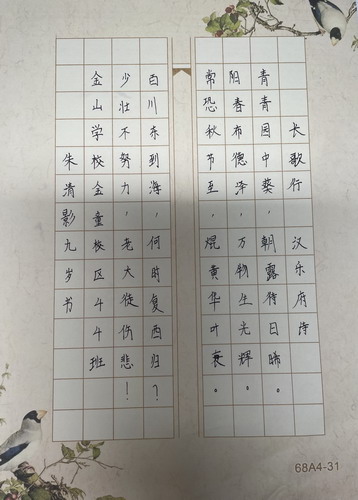 长歌行 汉乐府诗
青青园中葵，朝露待日晞。
阳春布德泽，万物生光辉。
常恐秋节至，焜黄华叶衰。
百川东到海，何时复西归？
少壮不努力，老大徒伤悲！
金山学校金童校区44班
朱清影九岁书
68A4-31